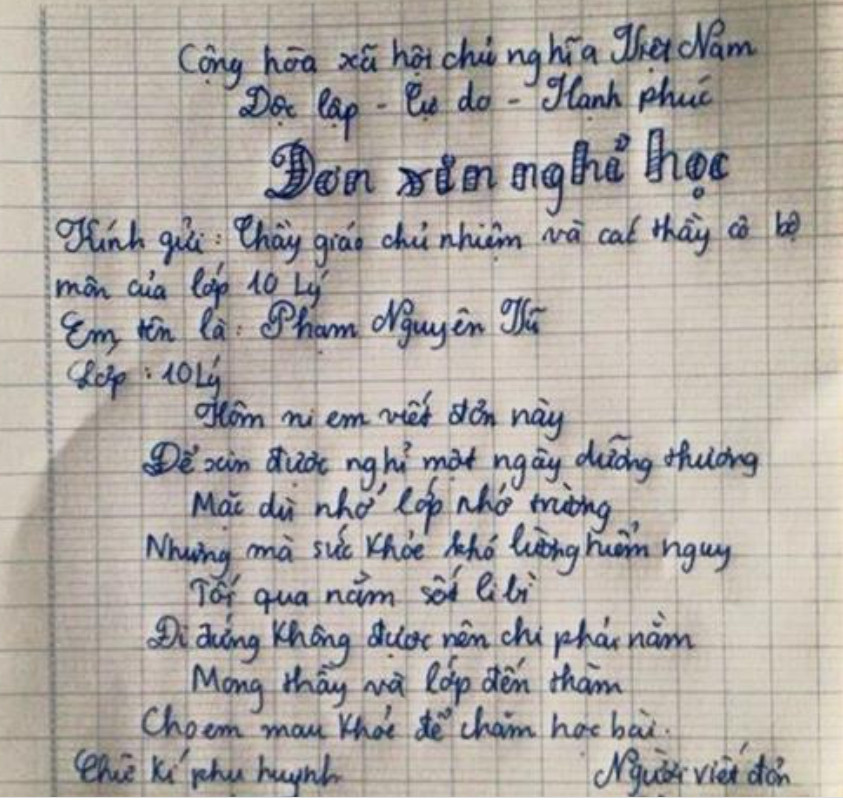 Cộng hòa xã hội chủ nghĩa Việt Nam
Độc lập - Tự do - Hạnh phúc
Đơn xin nghỉ học
Kính gửi: Thầy giáo chủ nhiệm và các thầy cô bộ
môn của lớp 10 Lý
Em tên là: Phạm Nguyên Vũ
Lớp: 10 Lý
Hôm ni em viết đơn này
Để xin được nghỉ một ngày dưỡng thương
Mặc dù nhớ lớp nhớ trường
Nhưng mà sức khỏe khó lường hiểm nguy
Tối qua nằm sốt li bì
Đi đứng không được nên chỉ phải nằm
Mong thầy và lớp đến thăm
Cho em mau khỏe để chăm học bài.
Chữ kí phụ huynh Người viết đơn